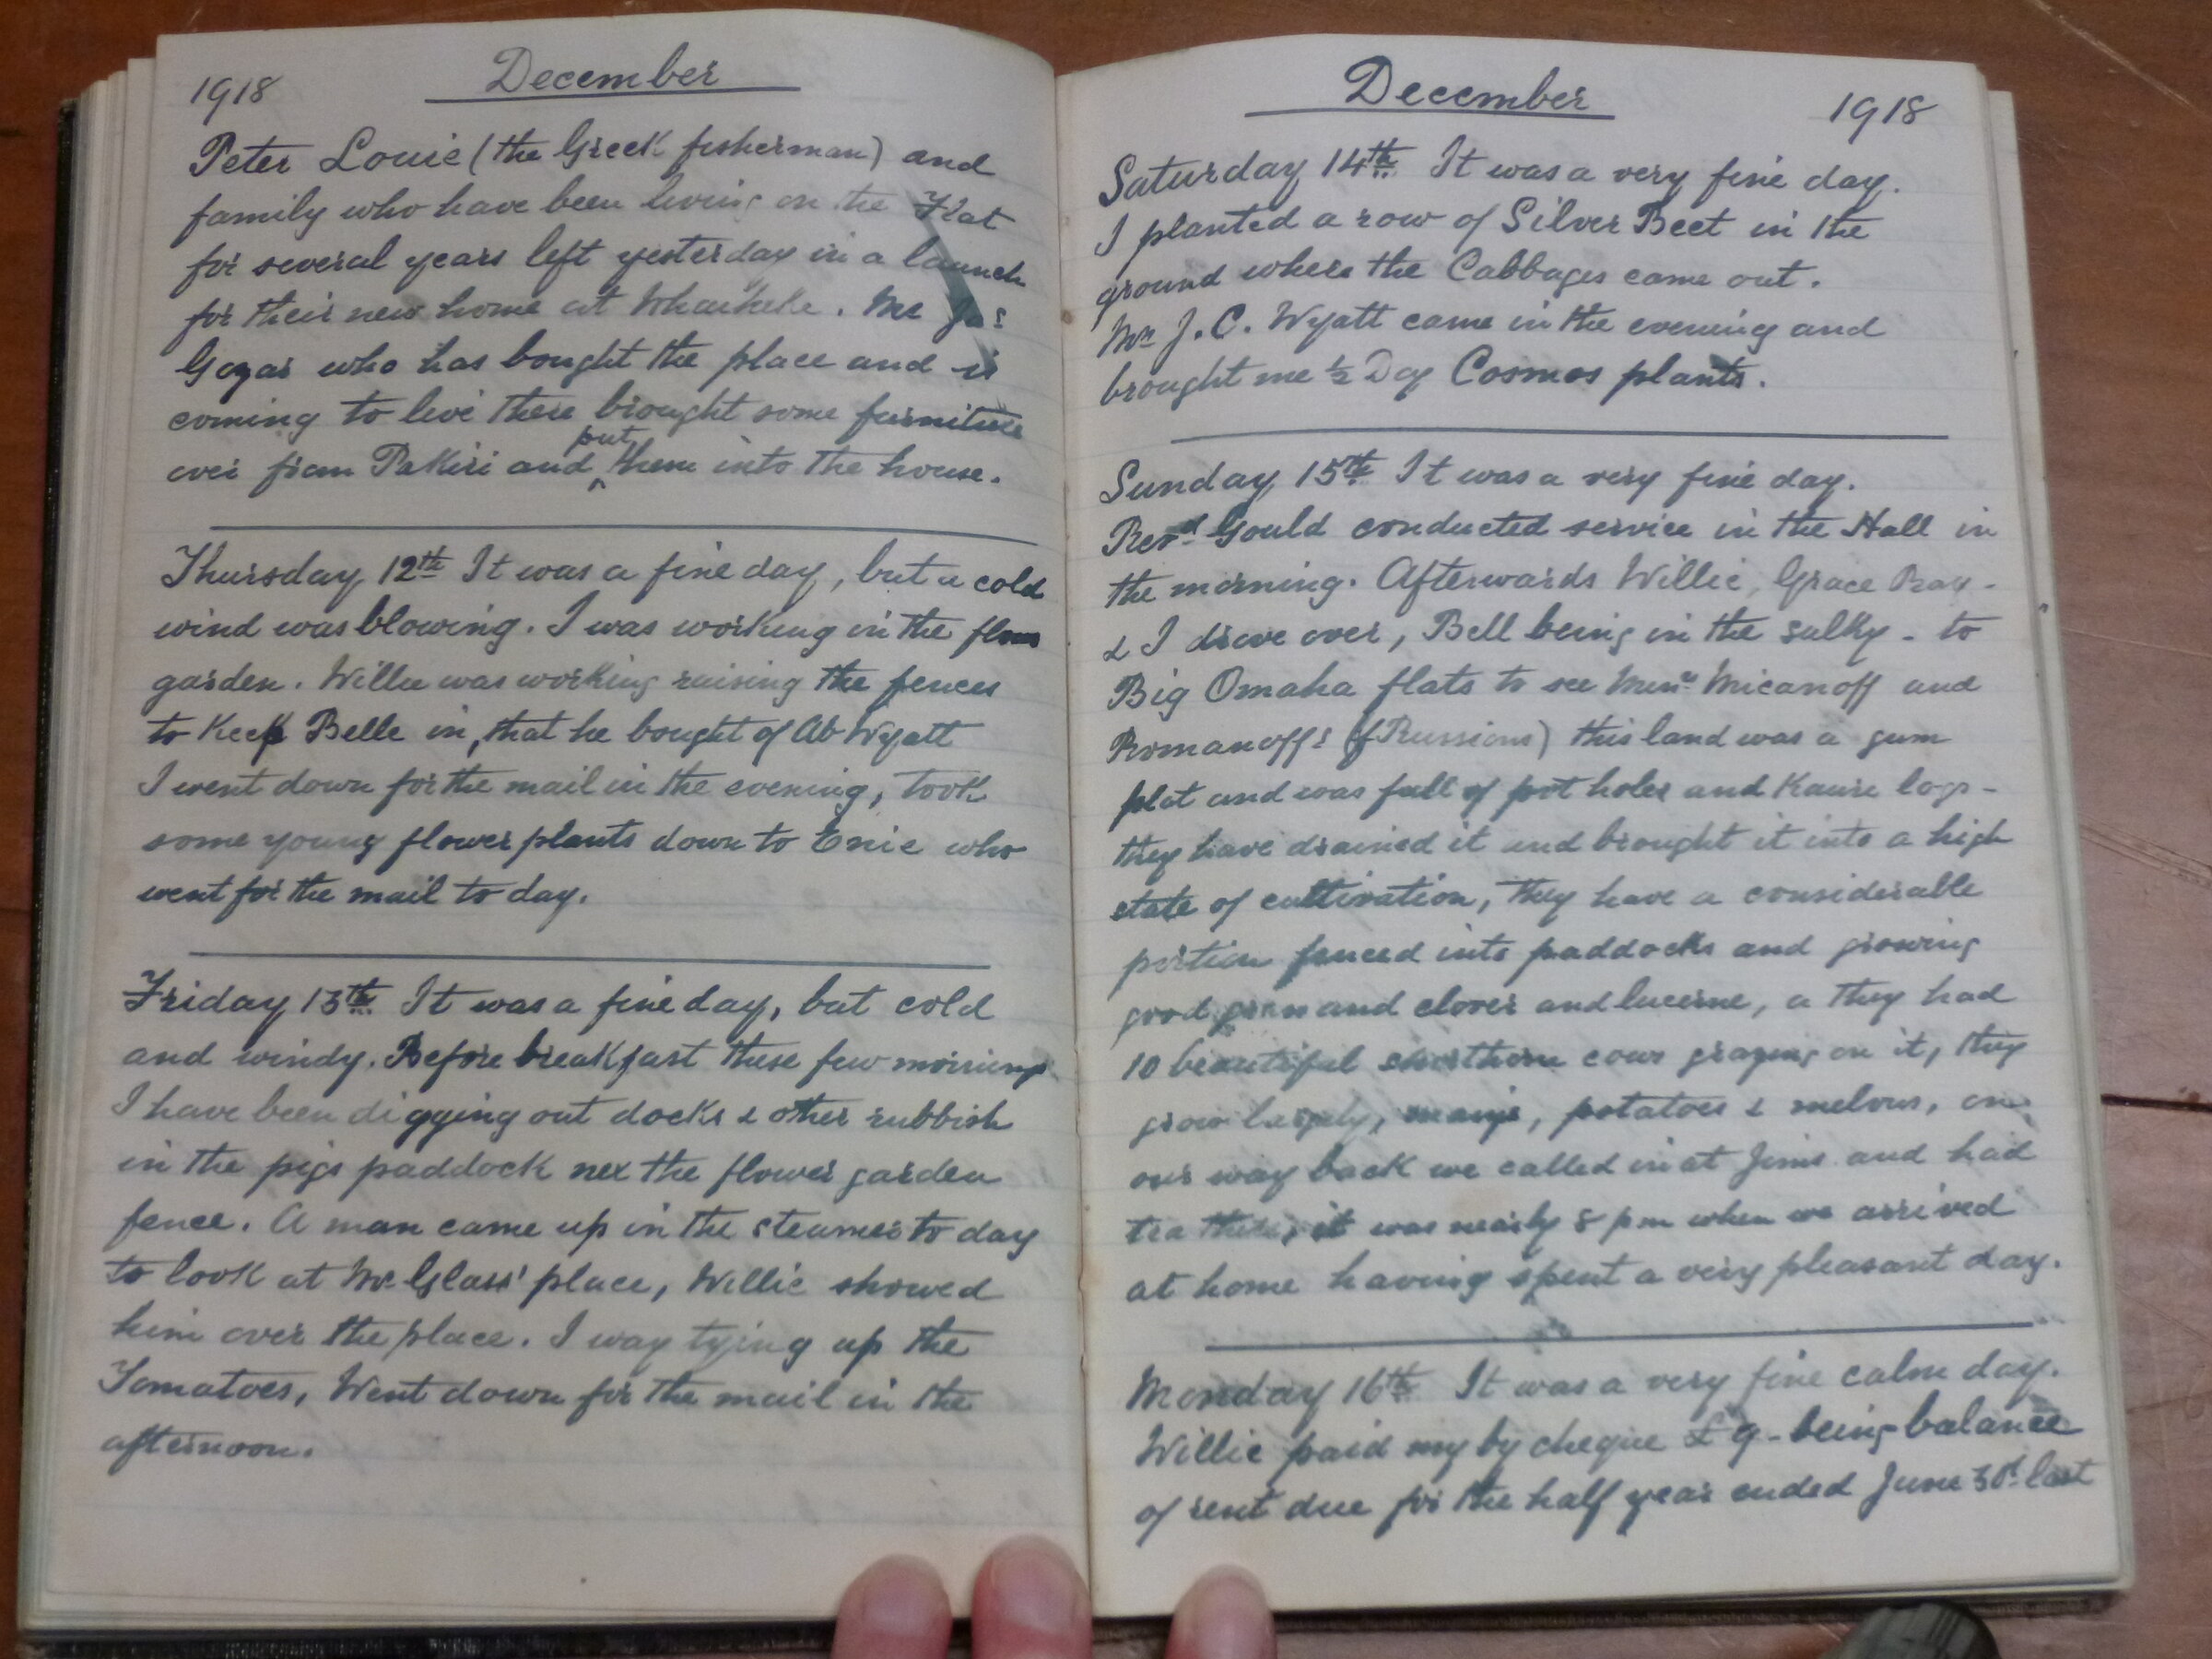 1918 December
Peter Louie (the Greek fisherman) and
family who have been living on the Flat
for several years left yesterday in a launch
for their new home at Whaiheke. Mr Jas
who has bought the place and is
coming to live there brought some furniture
over from Pakiri and put them into the house.
Thursday 12th It was a fine day, but a cold
wind was blowing. I was working in the flower
garden. Willie was working raising the fences
to Keep Belle in, that he bought of Ab Wyatt
I went down for the mail in the evening, took
some young flower plants down to Enie who
went for the mail to day.
Friday 13th It was a fine day, but cold
and windy. Before breakfast these few mornings
I have been digging out docks & other rubbish
in the pigs paddock nex the flower garden
fence. A man came up in the steamer to day
to look at Mr Glass' place, Willie showed
him over the place. I way tying up the
Tomatoes, Went down for the mail in the
afternoon.
December 1918
Saturday 14th It was a very fine day.
I planted a row of Silver Beet in the
ground where the Cabbages came out.
Mr J. C. Wyatt came in the evening and
brought me ½ Doz Cosmos plants.
Sunday 15th It was a very fine day.
Revd Gould conducted service in the Hall in
the morning. Afterwards Willie, Grace Ray -
& I drove over, Bell being in the sulky - to
Big Omaha flats to see Micanoff and
Romanoff's (Russians) this land was a gum
flat and was full of pot holes and Kauri logs -
they have drained it and brought it into a high
state of cultivation, they have a considerable
portion fenced into paddocks and growing
good grass and clover and lucerne, a they had
10 beautiful shorthorn cows grazing on it, they
grow largely, maize, potatoes & melons, on
our way back we called in at Jims and had
tea there, it was nearly 8 pm when we arrived
at home having spent a very pleasant day.
Monday 16th It was a very fine calm day.
Willie paid my by cheque £9 - being balance
of rent due for the half year ended June 30th last